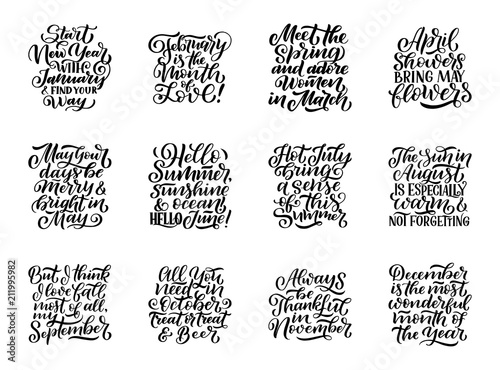 Start
New Year
WITH
January
& FIND YOUR
Way
February
is the
Month
of Love!
Meet the
Spring
and adore
Women
in March
April
Showers
BRING MAY
flowers
May your
days be
Merry &
bright in
May
Hello
Summer,
sunshine
& ocean,
HELLO June!
Hot July
bring
a sense
of this
Summer
The Sun in
August
IS ESPECIALLY
warm &
NOT FORGETTING
But I think
I love fall
most of all,
my
September
All You
need in
October
treat or treat
& Beer
Always
be
Thankful
in
November
December
is the most
wonderful
month of
the Year
Adobe Stock | #211995982